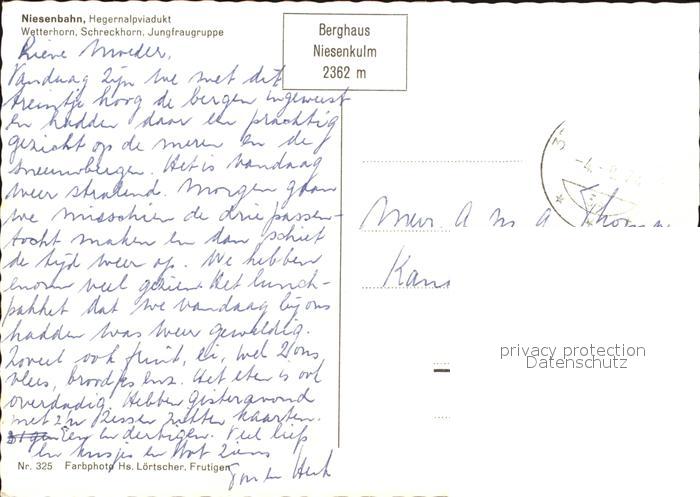 Niesenbahn, Hegernalpviadukt
Wetterhorn, Schreckhorn, Jungfraugruppe
Berghaus
Niesenkulm
2362 m
Lieve Moeder,
Vandaag zijn we met dit
treintje hoog de bergen ingeweest
en hadden daar een prachtig
gezicht op de meren en de
sneeuwbergen. Het is vandaag
weer stralend. Morgen gaan
we misschien de drie passen-
tocht maken en dan schiet
de tijd weer op. We hebben
enorm veel gezien. Het lunch-
pakket dat we vandaag bij ons
hadden was weer geweldig.
Zoveel ook fruit, ei, wel 2 ons
vlees, broodjes enz. Het eten is ook
overdadig. Hebben gisteravond
met z'n zessen zitten kaarten.
Een en dertigen. Veel liefs
en kusjes en tot ziens
Mevr. A M A
privacy protection
Datenschutz
Nr. 325 Farbphoto Hs. Lörtscher, Frutigen